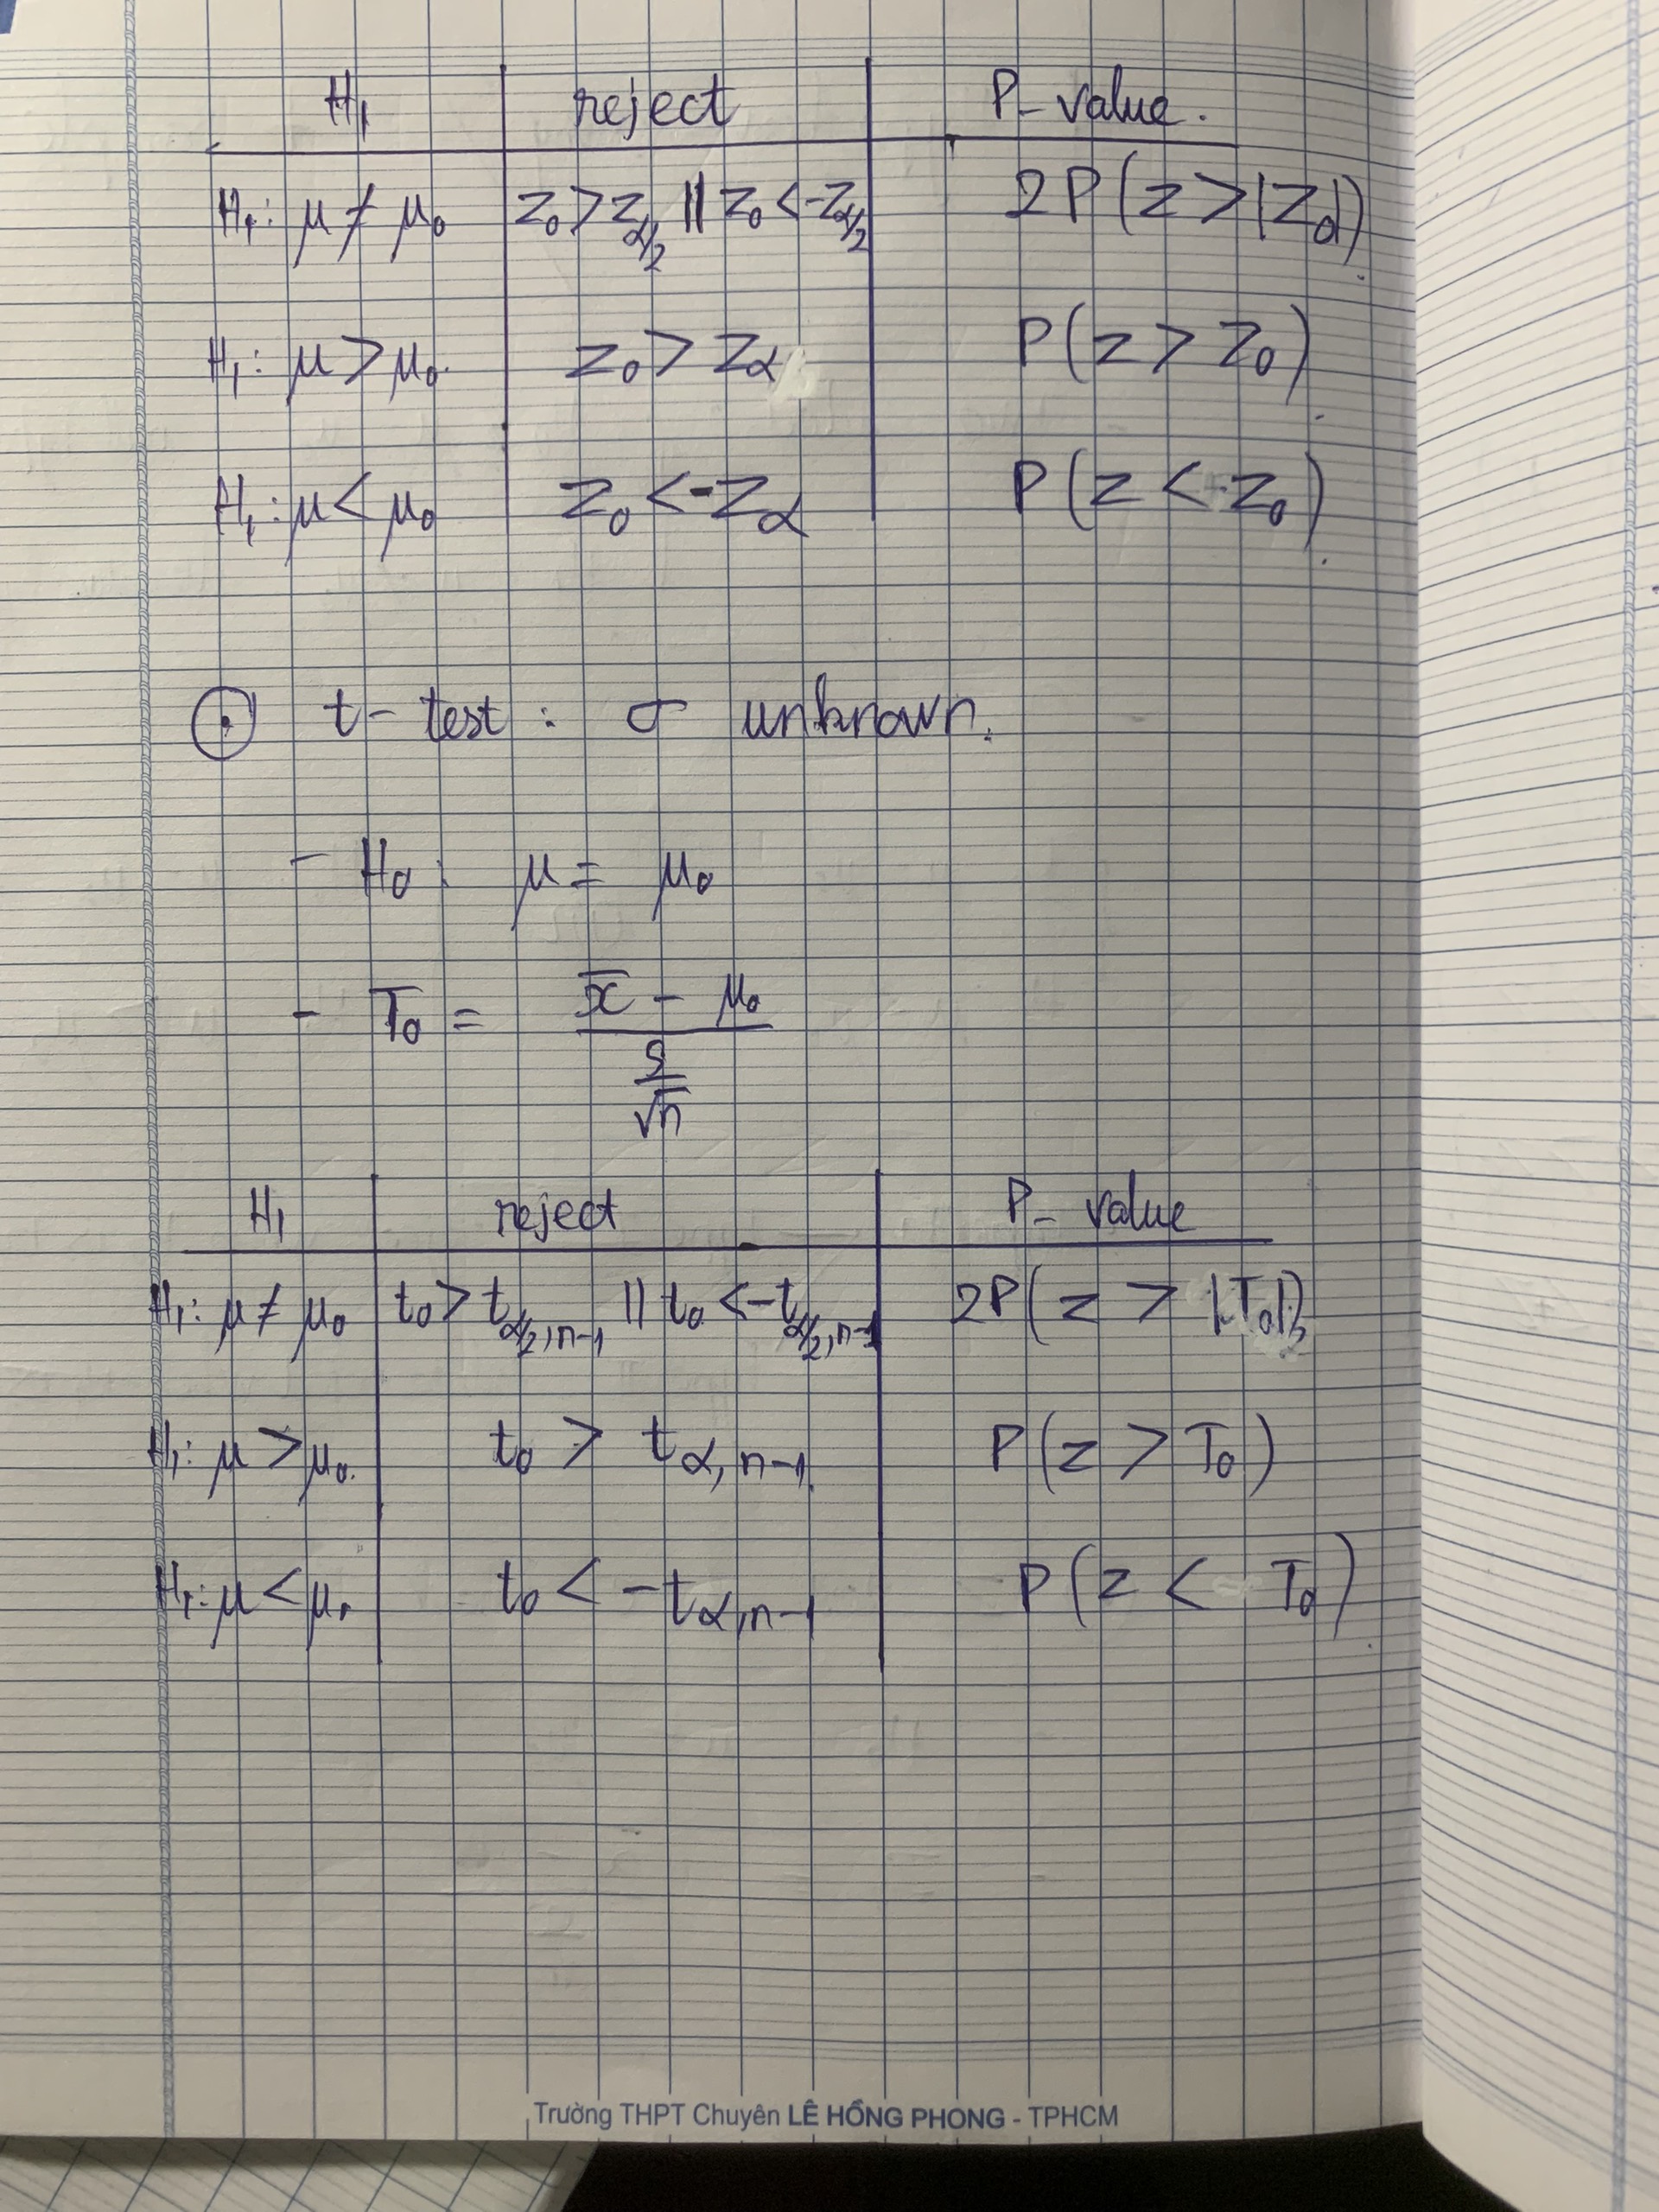 H₁ reject P-value.
H₁: μ ≠ μ₀ z₀ > z_α/2 || z₀ < -z_α/2 2P(z > |Z₀|).
H₁: μ > μ₀. z₀ > z_α P(z > Z₀).
H₁: μ < μ₀ z₀ < -z_α P(z < z₀).
⊙ t-test: σ unknown.
- H₀: μ = μ₀
- T₀ = (x̄ - μ₀) / (s/√n)
H₁ reject P-value
H₁: μ ≠ μ₀ t₀ > t_α/2,n-1 || t₀ < -t_α/2,n-1 2P(z > |T₀|)
H₁: μ > μ₀. t₀ > t_α,n-1. P(z > T₀)
H₁: μ < μ₀ t₀ < -t_α,n-1 P(z < T₀).
Trường THPT Chuyên LÊ HỒNG PHONG - TPHCM